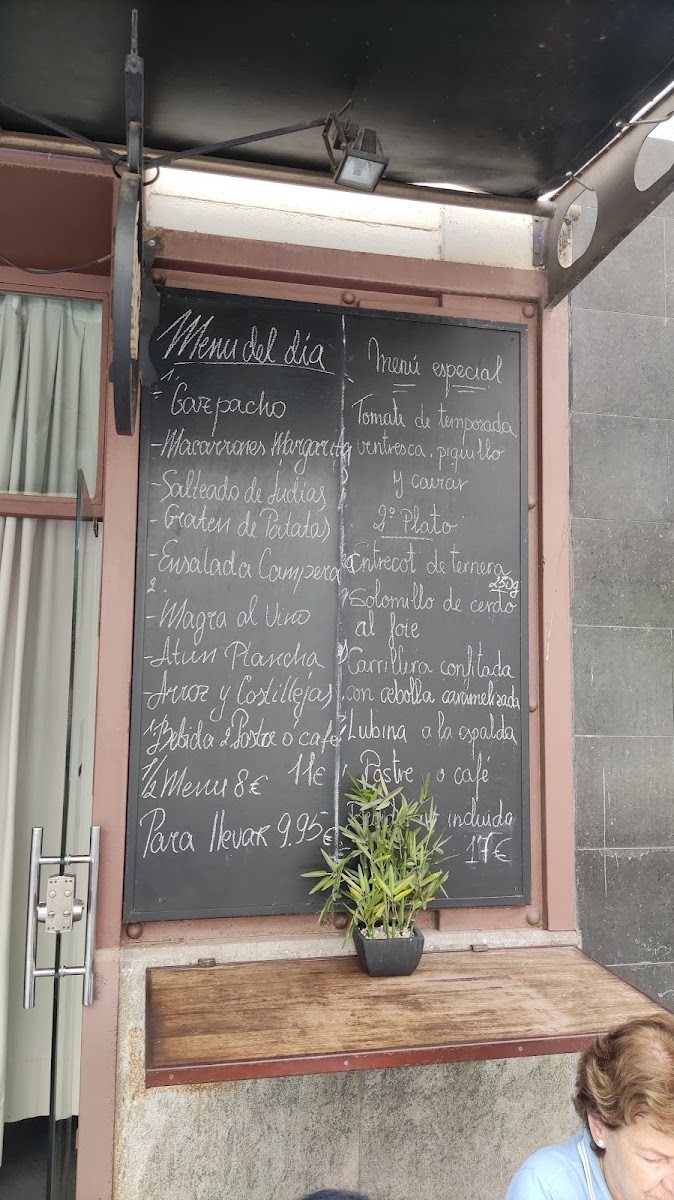 Menu del día
1.
- Gazpacho
- Macarrones Margarita
- Salteado de Judias
- Graten de Patatas
- Ensalada Campera
2.
- Magra al Vino
- Atun Plancha
- Arroz y Costillejas
1 Bebida 2 Postre o café
1/2 Menu 8€ 11€
Para llevar 9.95€
Menú especial
Tomate de temporada,
ventresca, piquillo
y caviar
2º Plato
Entrecot de ternera
250g
Solomillo de cerdo
al foie
Carrillera confitada
con cebolla caramelizada
Lubina a la espalda
Postre o café
incluida
17€